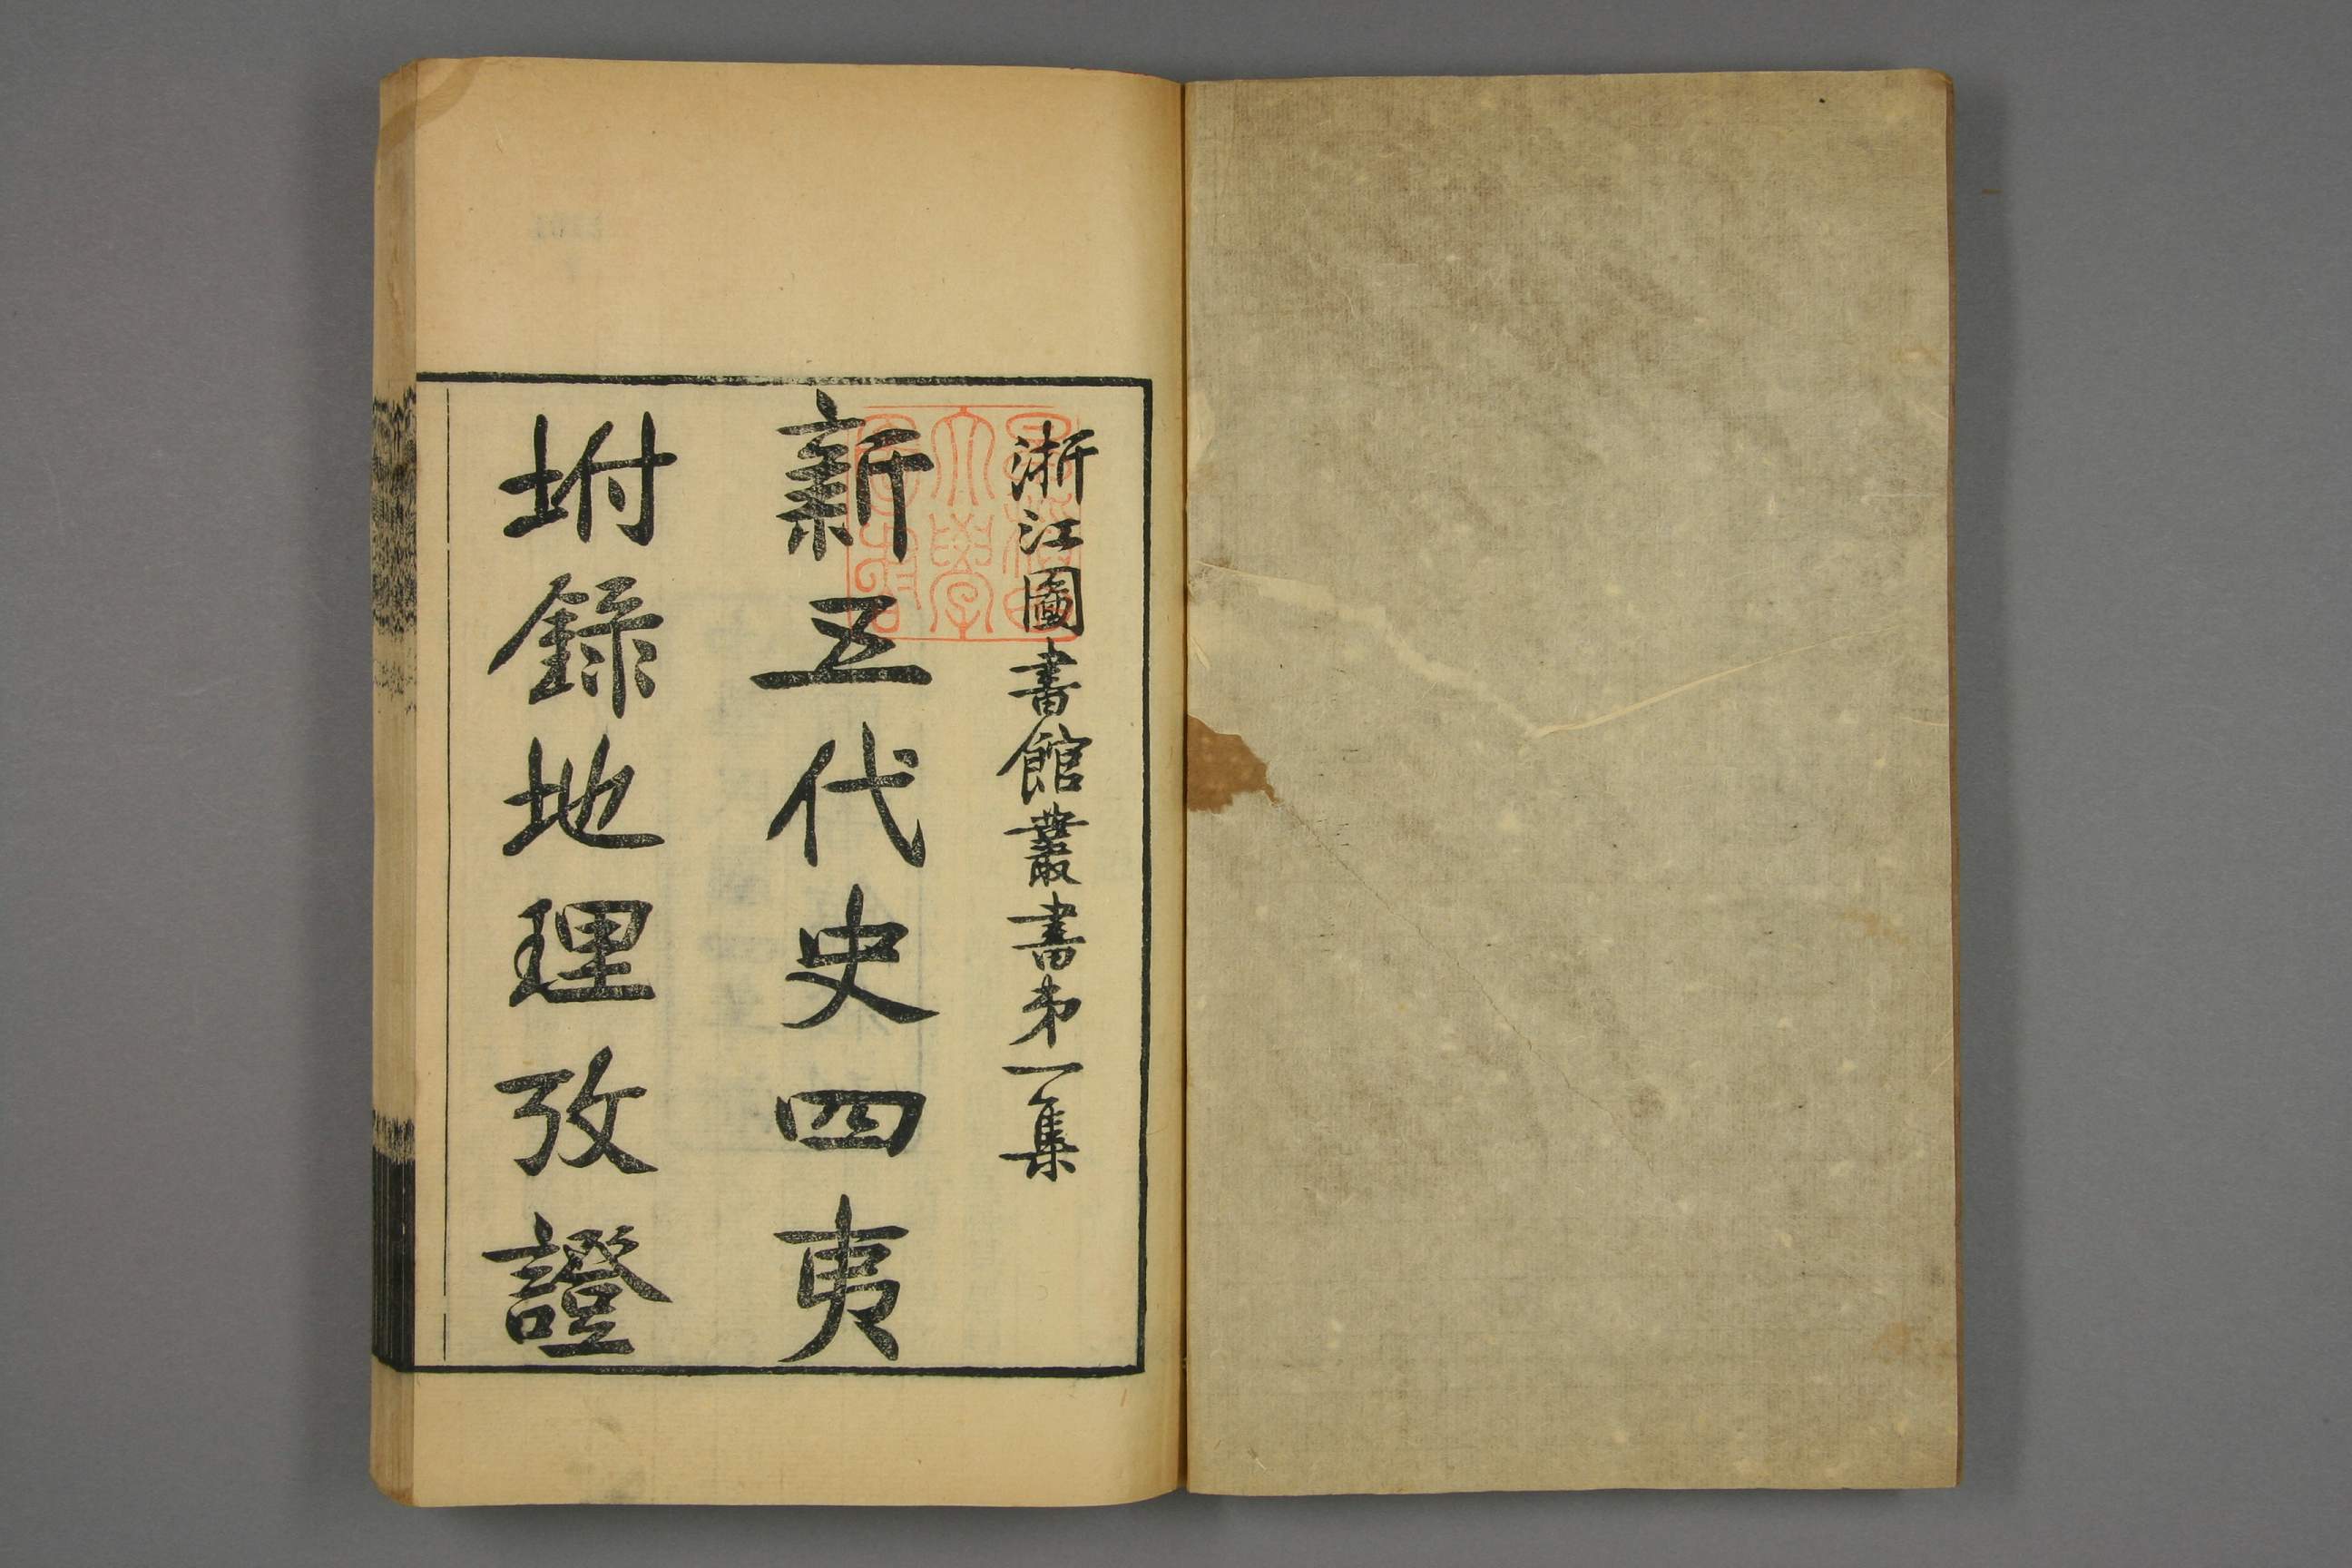 浙江圖書館叢書弟一集
新五代史四夷
坿錄地理攷證
大學